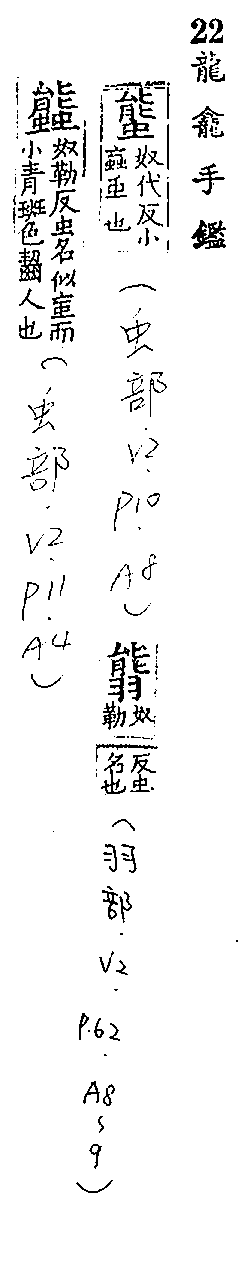 22 龍龕手鑑
奴代反小
也
(虫部·V2·P10·A8)
奴勒
反虫名也
(羽部·V2·P.62·A8~9)
奴勒反虫名似蝱而
小青斑色齧人也
(虫部·V2·P11·A4)